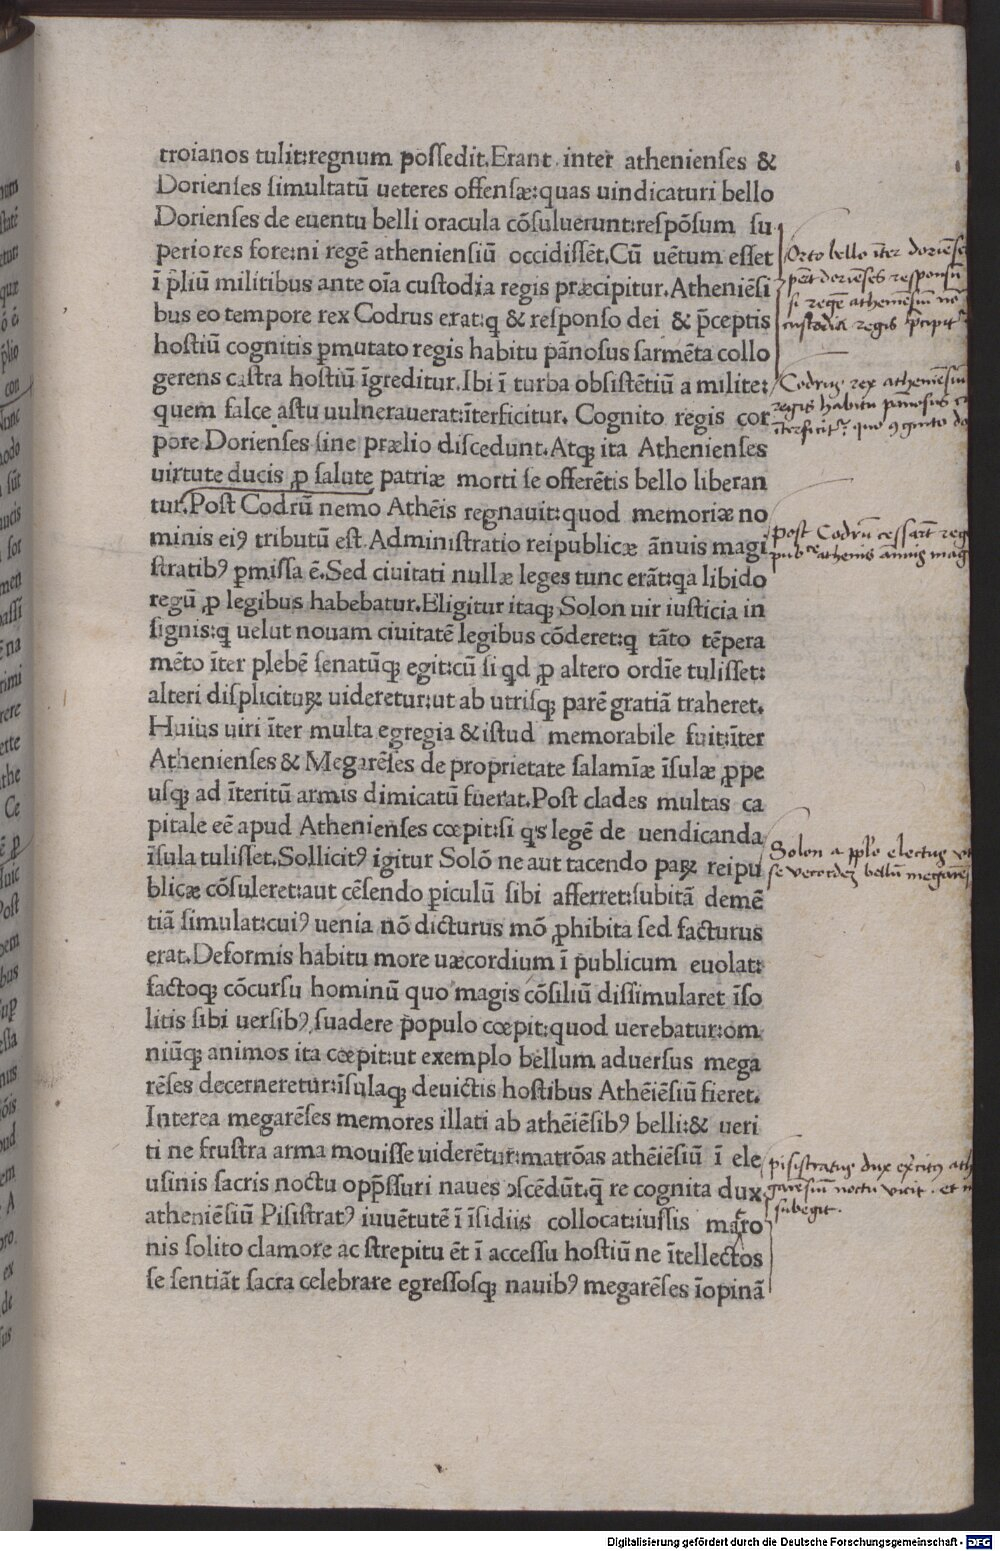 troianos tulit:regnum possedit.Erant inter athenienses &
Dorienses simultatū ueteres offensæ:quas uindicaturi bello
Dorienses de euentu belli oracula cōsuluerunt:respōsum su
periores fore:ni regē atheniensiū occidissēt.Cū uētum esset
ī p̄liū militibus ante oīa custodia regis præcipitur.Atheniēsi
bus eo tempore rex Codrus erat:q & responso dei & p̄ceptis
hostiū cognitis ꝑmutato regis habitu pānosus sarmēta collo
gerens castra hostiū īgreditur.Ibi ī turba obsistētiū a milite:
quem falce astu uulnerauerat:īterficitur. Cognito regis cor
pore Dorienses sine prælio discedunt.Atqꝫ ita Athenienses
uirtute ducis ꝓ salute patriæ morti se offerētis bello liberan
tur.Post Codrū nemo Athēis regnauit:quod memoriæ no
minis eiꝰ tributū est.Administratio reipublicæ ānuis magi
stratibꝰ ꝑmissa ē.Sed ciuitati nullæ leges tunc erāt:qa libido
regū ꝓ legibus habebatur.Eligitur itaqꝫ Solon uir iusticia in
signis:q uelut nouam ciuitatē legibus cōderet:q tāto tēpera
mēto īter plebē senatūqꝫ egit:cū si qd ꝓ altero ordīe tulisset:
alteri displicituꝝ uideretur:ut ab utrisqꝫ parē gratiā traheret.
Huius uiri īter multa egregia & istud memorabile fuit:īter
Athenienses & Megarēses de proprietate salamīæ īsulæ ꝓpe
usqꝫ ad īteritū armis dimicatū fuerat.Post clades multas ca
pitale eē apud Athenienses cœpit:si qͥs legē de uendicanda
īsula tulisset.Sollicitꝰ igitur Solō ne aut tacendo paꝝ reipu
blicæ cōsuleret:aut cēsendo ꝑiculū sibi afferret:subitā demē
tiā simulat:cuiꝰ uenia nō dicturus mō ꝓhibita sed facturus
erat.Deformis habitu more uæcordium ī publicum euolat:
factoqꝫ cōcursu hominū quo magis cōsiliū dissimularet īso
litis sibi uersibꝰ suadere populo cœpit:quod uerebatur:om
niūqꝫ animos ita cœpit:ut exemplo bellum aduersus mega
rēses decerneretur:īsulaqꝫ deuictis hostibus Athēiēsiū fieret.
Interea megarēses memores illati ab athēiēsibꝰ belli:& ueri
ti ne frustra arma mouisse uiderētur:matrōas athēiēsiū ī ele
usinis sacris noctu opp̄ssuri naues ↄscēdūt.q̄ re cognita dux
atheniēsiū Pisistratꝰ iuuētutē ī īsidiis collocat:iussis maͬo
nis solito clamore ac strepitu ēt ī accessu hostiū ne ītellectos
se sentiāt sacra celebrare egressosqꝫ nauibꝰ megarēses īopinā
Orto bello īter doriēse
responsū
si regē atheniēsiū nō
custodia regis p̄cipit
Codrus rex atheniēsiū
regis habitu pānosus
īterficit
post Codrū
athenis annus mag
Solon a pp̄lo electus
se bellū megarēs
pisistratus dux exercitꝰ ath
garēsiū noctu vicit. et
subegit.
Digitalisierung gefördert durch die Deutsche Forschungsgemeinschaft - DFG